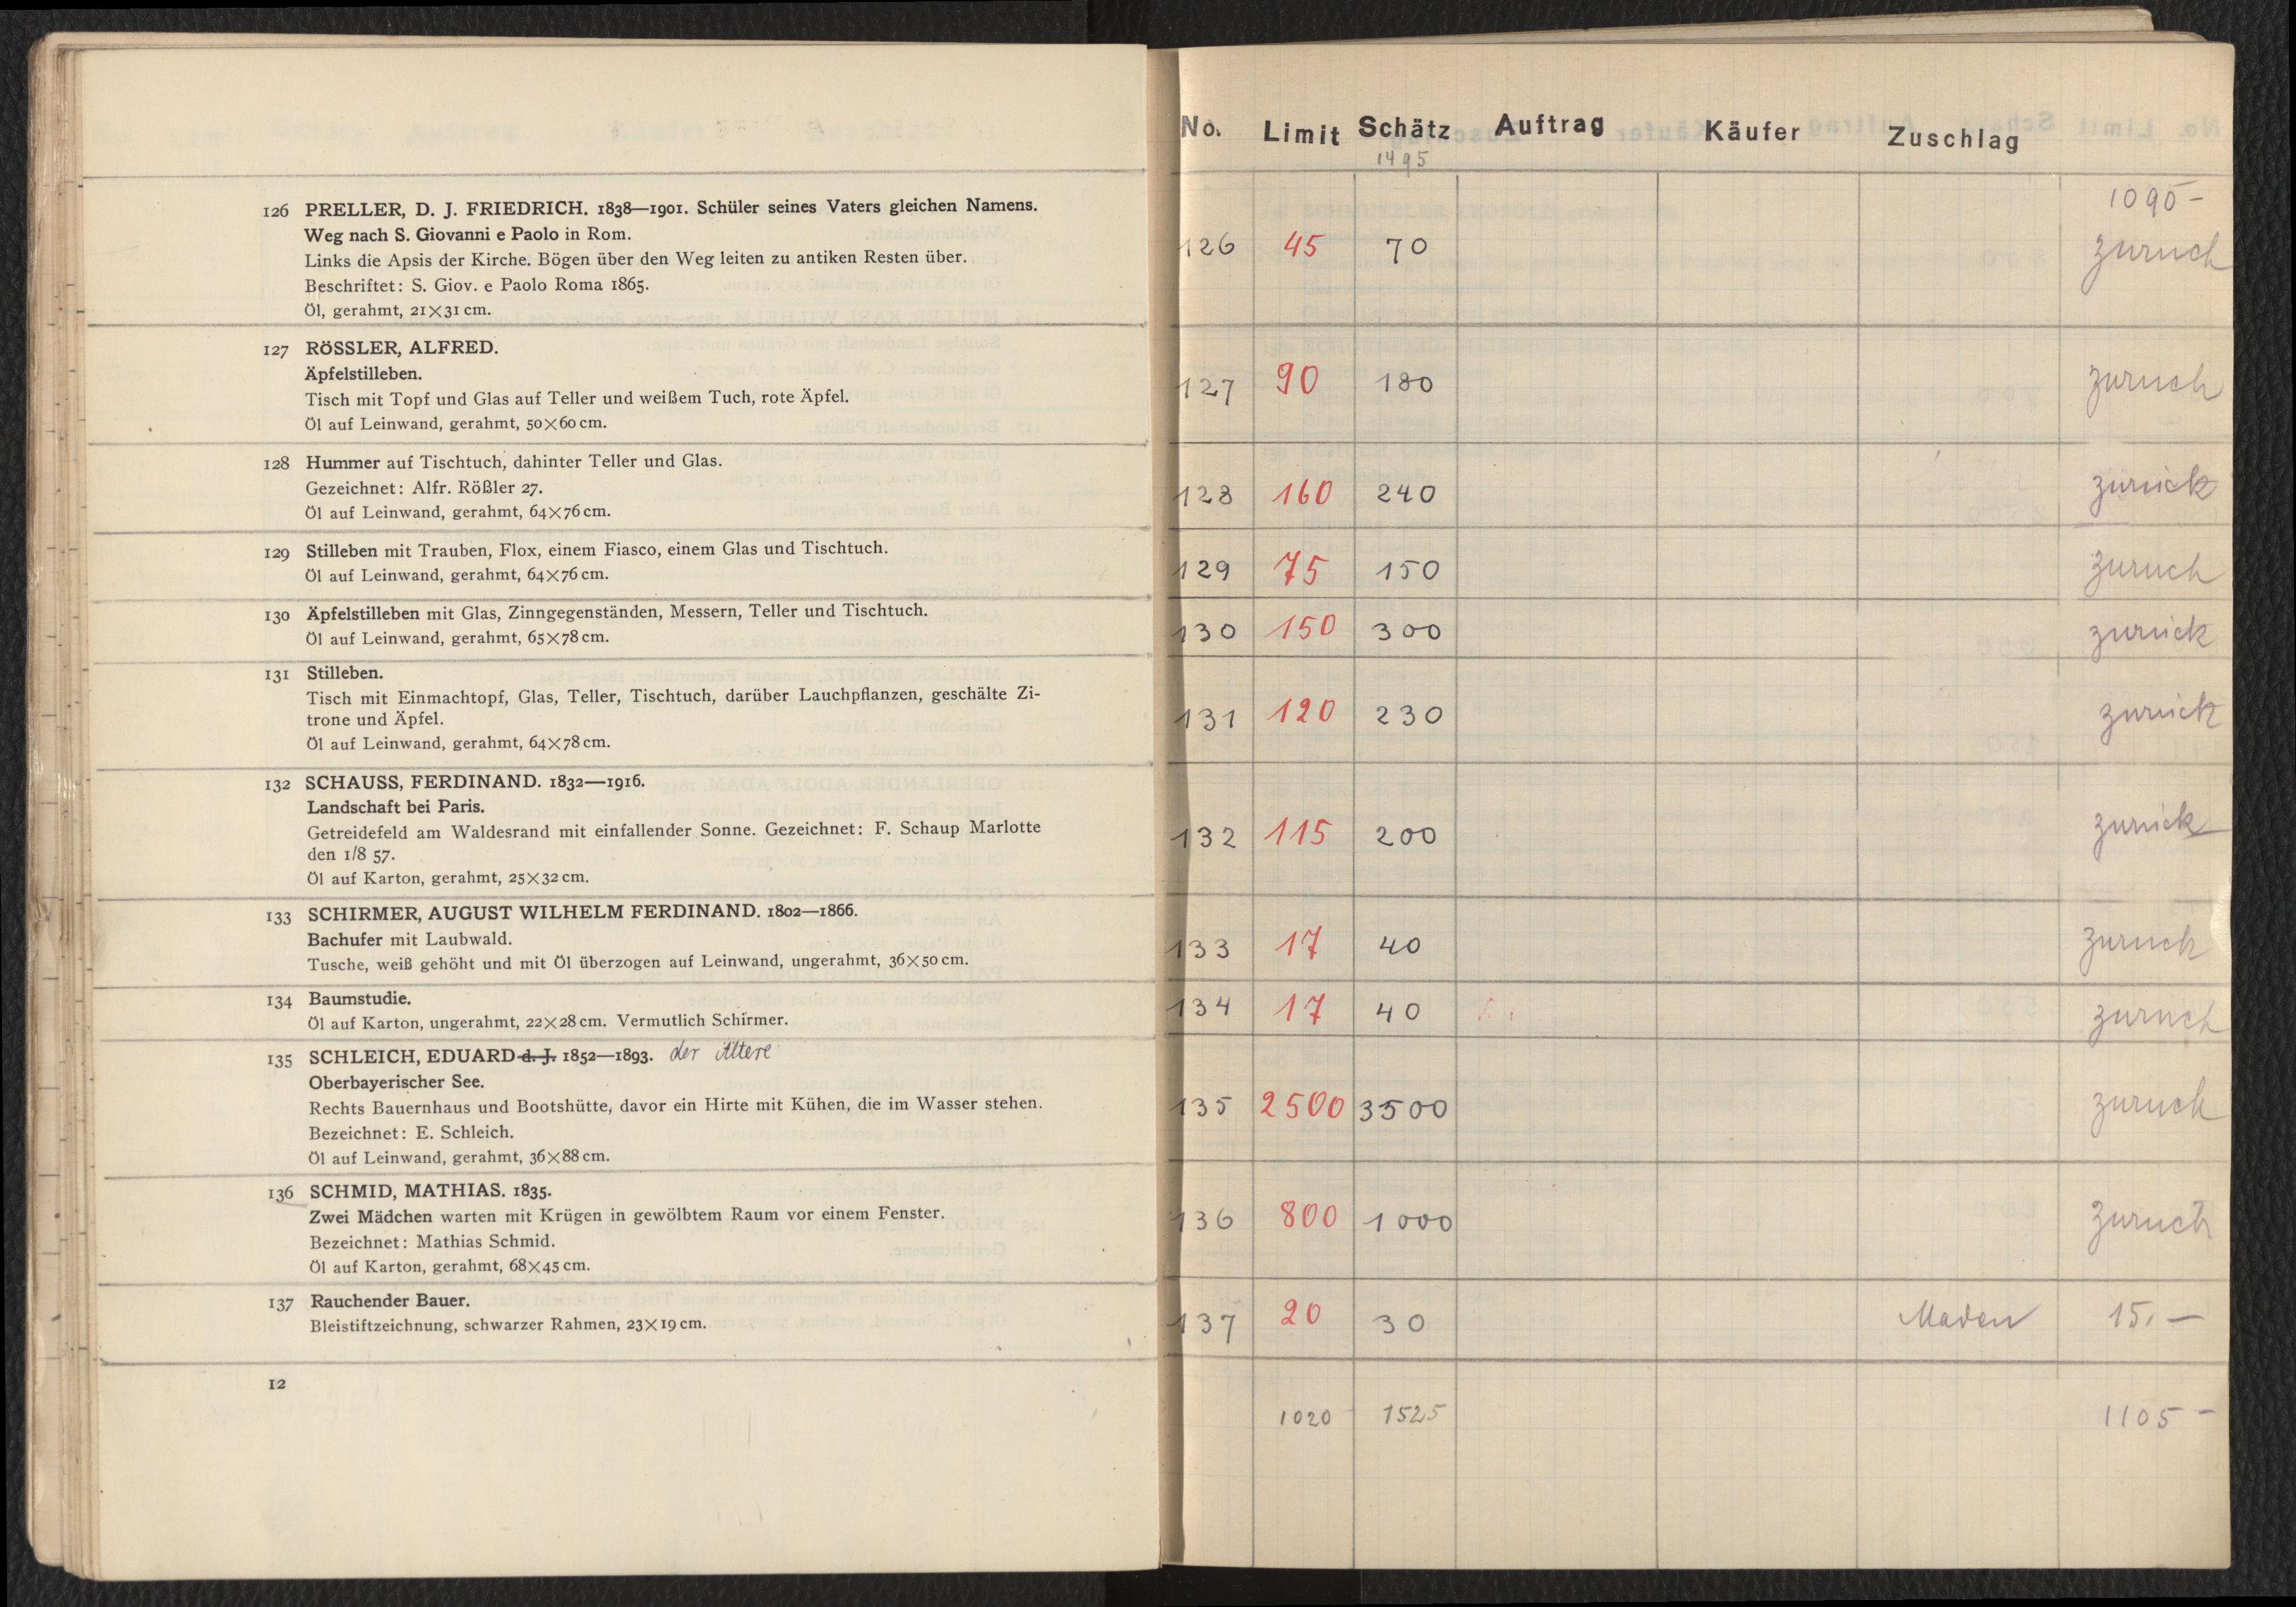 126 PRELLER, D. J. FRIEDRICH. 1838—1901. Schüler seines Vaters gleichen Namens.
Weg nach S. Giovanni e Paolo in Rom.
Links die Apsis der Kirche. Bögen über den Weg leiten zu antiken Resten über.
Beschriftet: S. Giov. e Paolo Roma 1865.
Öl, gerahmt, 21×31 cm.
127 RÖSSLER, ALFRED.
Äpfelstilleben.
Tisch mit Topf und Glas auf Teller und weißem Tuch, rote Äpfel.
Öl auf Leinwand, gerahmt, 50×60 cm.
128 Hummer auf Tischtuch, dahinter Teller und Glas.
Gezeichnet: Alfr. Rößler 27.
Öl auf Leinwand, gerahmt, 64×76 cm.
129 Stilleben mit Trauben, Flox, einem Fiasco, einem Glas und Tischtuch.
Öl auf Leinwand, gerahmt, 64×76 cm.
130 Äpfelstilleben mit Glas, Zinngegenständen, Messern, Teller und Tischtuch.
Öl auf Leinwand, gerahmt, 65×78 cm.
131 Stilleben.
Tisch mit Einmachtopf, Glas, Teller, Tischtuch, darüber Lauchpflanzen, geschälte Zi-
trone und Äpfel.
Öl auf Leinwand, gerahmt, 64×78 cm.
132 SCHAUSS, FERDINAND. 1832—1916.
Landschaft bei Paris.
Getreidefeld am Waldesrand mit einfallender Sonne. Gezeichnet: F. Schaup Marlotte
den 1/8 57.
Öl auf Karton, gerahmt, 25×32 cm.
133 SCHIRMER, AUGUST WILHELM FERDINAND. 1802—1866.
Bachufer mit Laubwald.
Tusche, weiß gehöht und mit Öl überzogen auf Leinwand, ungerahmt, 36×50 cm.
134 Baumstudie.
Öl auf Karton, ungerahmt, 22×28 cm. Vermutlich Schirmer.
135 SCHLEICH, EDUARD d. J. 1852—1893. der Ältere
Oberbayerischer See.
Rechts Bauernhaus und Bootshütte, davor ein Hirte mit Kühen, die im Wasser stehen.
Bezeichnet: E. Schleich.
Öl auf Leinwand, gerahmt, 36×88 cm.
136 SCHMID, MATHIAS. 1835.
Zwei Mädchen warten mit Krügen in gewölbtem Raum vor einem Fenster.
Bezeichnet: Mathias Schmid.
Öl auf Karton, gerahmt, 68×45 cm.
137 Rauchender Bauer.
Bleistiftzeichnung, schwarzer Rahmen, 23×19 cm.
12
No. Limit Schätz Auftrag Käufer Zuschlag
1495
1090-
126 45 70 zurück
127 90 180 zurück
128 160 240 zurück
129 75 150 zurück
130 150 300 zurück
131 120 230 zurück
132 115 200 zurück
133 17 40 zurück
134 17 40 zurück
135 2500 3500 zurück
136 800 1000 zurück
137 20 30 Maden 15,—
1020 1525 1105-